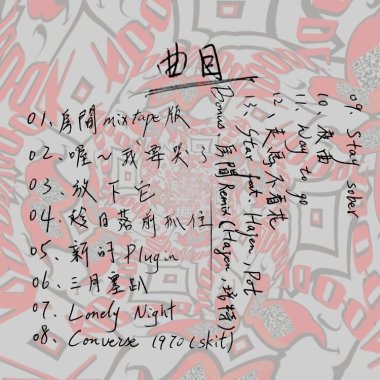 曲目
01、房間mixtape版
02、喔～我要哭了
03、放下它
04、日落前抓住
05、新的Plugin
06、三月趴
07、Lonely Night
08、Converse 1970(skit)
09、Stay sober
10、曲
11、Way to go
12、走馬不看花
13、Star feat. Hajen, Dot
Bonus 房間Remix(Hajen,